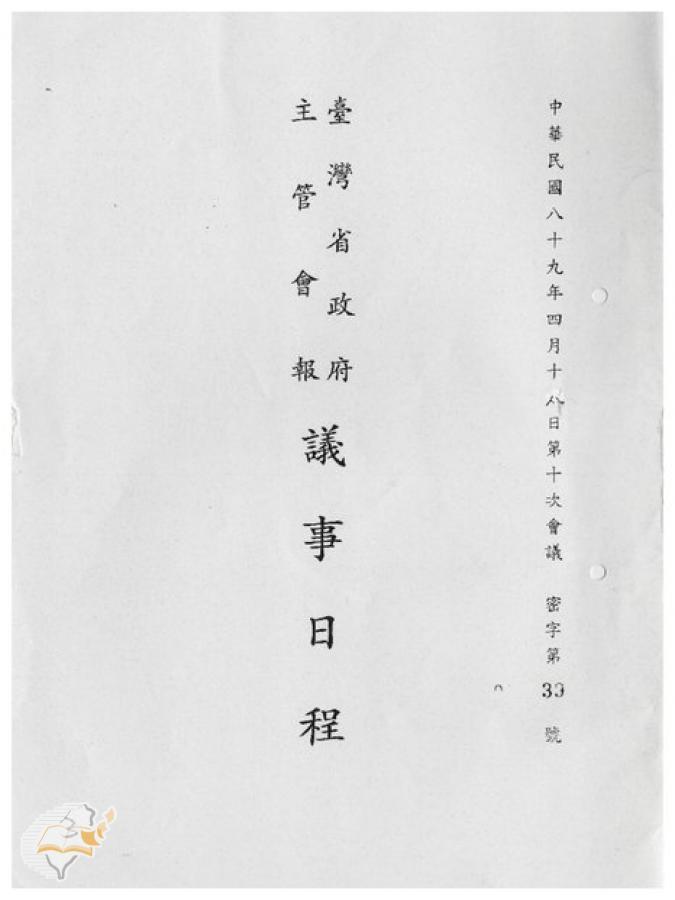 中華民國八十九年四月十八日第十次會議 密字第39號
臺灣省政府
主管會報
議事日程